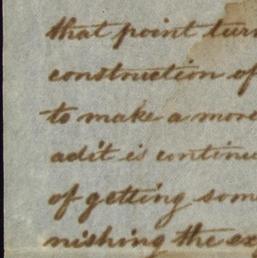 that point turn
construction of
to make a more
adit is continue
of getting som
nishing the ex